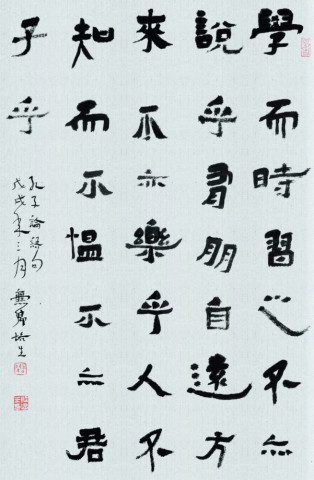 學而時習之不亦
說乎有朋自遠方
來不亦樂乎人不
知而不慍不亦君
子乎
孔子論語句
戊戌年三月